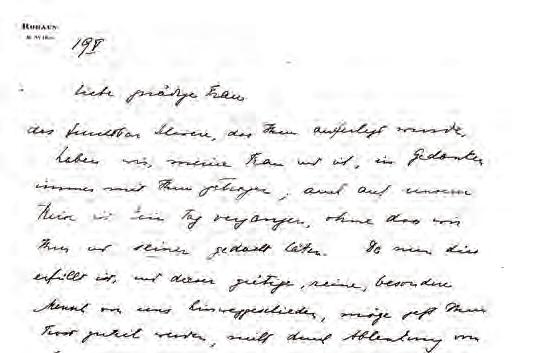 RODAUN
19 V
Liebe gnädige Frau
das furchtbar Schwere, das Ihnen auferlegt wurde,
haben wir, meine Frau und ich, in Gedanken
immer mit Ihnen getragen; auch auf unserer
Reise ist kein Tag vergangen, ohne dass wir
Ihrer und seiner gedacht hätten. Da nun dies
erfüllt ist, und dieser gütige, reine, besondere
Mensch von uns hinweggeschieden, möge jetzt Ihnen
Trost zuteil werden, nicht durch Ablenkung von